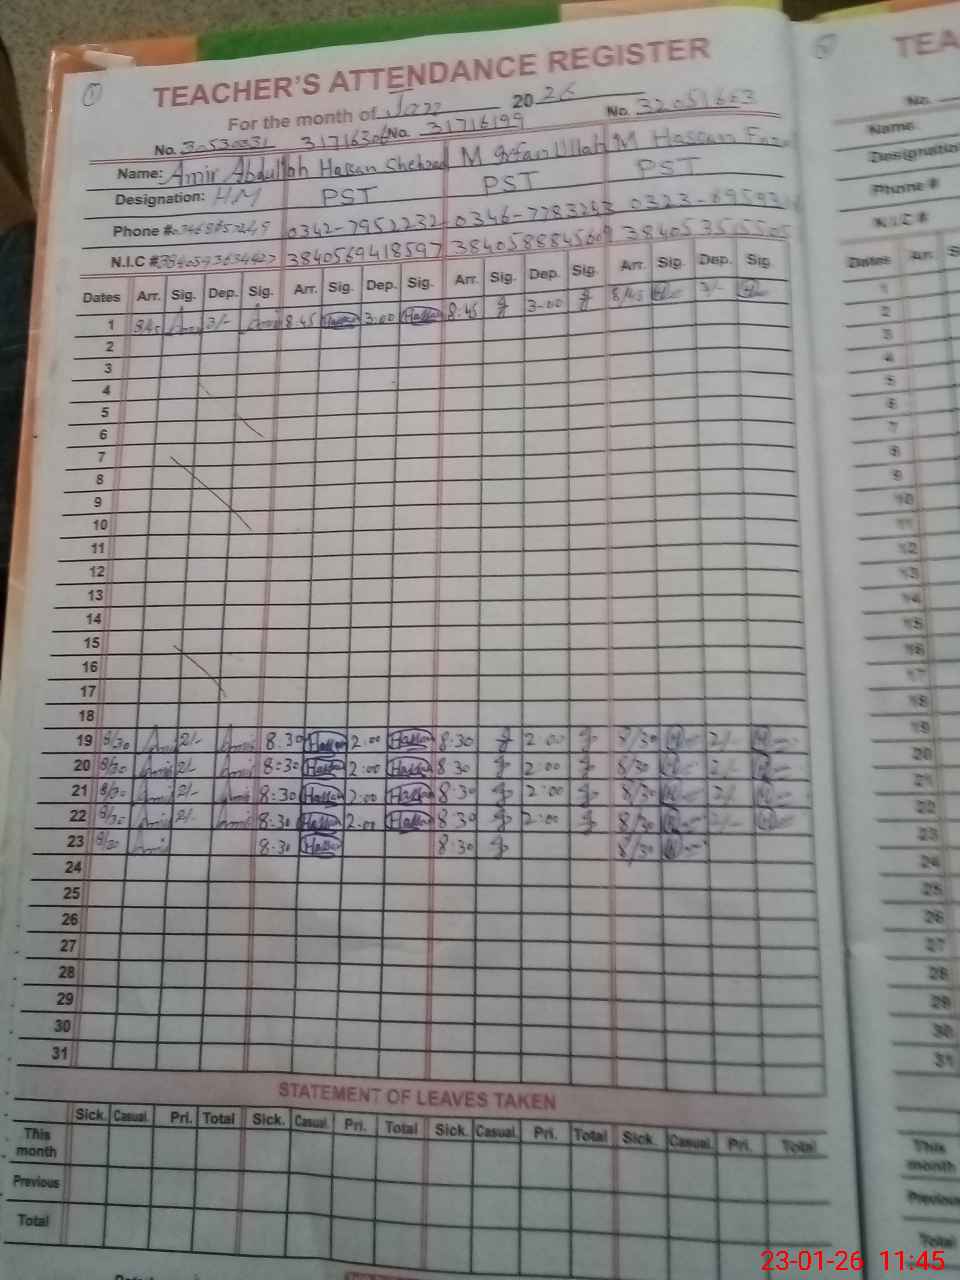 TEACHER'S ATTENDANCE REGISTER
For the month of Jan 2026
No. 30530331 31716306 No. 31716199 No. 32051663
Name: Amir Abdullah Hassan Shehzad M Irfan Ullah M Hassan
Designation: HM PST PST PST
Phone #. 0342-7952232 0346-7783243 0323-
N.I.C # 3840569418597 3840588845609
Dates Arr. Sig. Dep. Sig. Arr. Sig. Dep. Sig. Arr. Sig. Dep. Sig. Arr. Sig. Dep. Sig.
1 8/45 Amir 3/- Amir 8:45 Hassan 3:00 Hassan 8:45 3-00 8/45 3/-
2
3
4
5
6
7
8
9
10
11
12
13
14
15
16
17
18
19 8/30 Amir 2/- Amir 8:30 Hassan 2:00 Hassan 8:30 2:00 8/30 2/-
20 8/30 Amir 2/- Amir 8:30 Hassan 2:00 Hassan 8:30 2:00 8/30 2/-
21 8/30 Amir 2/- Amir 8:30 Hassan 2:00 Hassan 8:30 2:00 8/30 2/-
22 8/30 Amir 2/- Amir 8:30 Hassan 2:00 Hassan 8:30 2:00 8/30 2/-
23 8/30 Amir 8:30 Hassan 8:30 8/30
24
25
26
27
28
29
30
31
STATEMENT OF LEAVES TAKEN
Sick. Casual. Pri. Total Sick. Casual. Pri. Total Sick. Casual. Pri. Total Sick. Casual. Pri. Total
This month
Previous
Total
TEA
No.
Name
Designation
Phone #
N.I.C #
Dates Arr. S
1
2
3
4
5
6
7
8
9
10
11
12
13
14
15
16
17
18
19
20
21
22
23
24
25
26
27
28
29
30
31
This month
Previous
Total
23-01-26 11:45